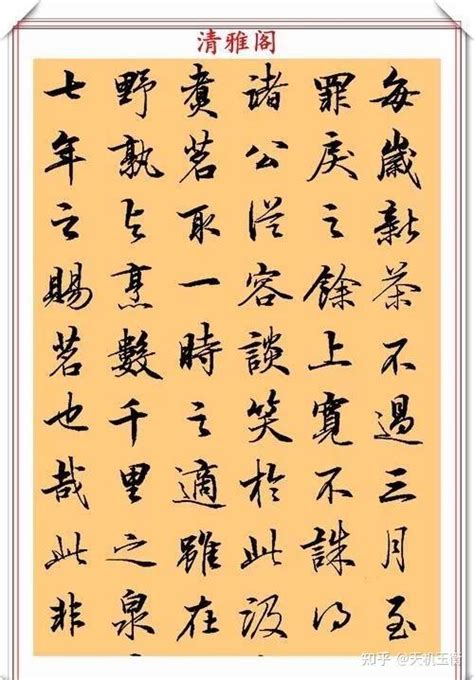 清雅阁
每歲新茶不過三月至
罪戾之餘上寬不誅得
諸公從容談笑於此汲
煑茗取一時之適雖在
野孰与烹數千里之泉
七年之賜茗也哉此非
知乎 @天机玉衡